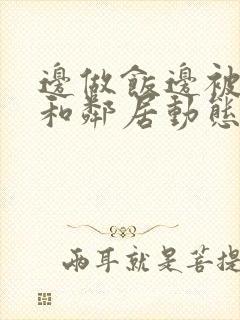 邊做飯邊被
和鄰居動態
兩耳就是菩提